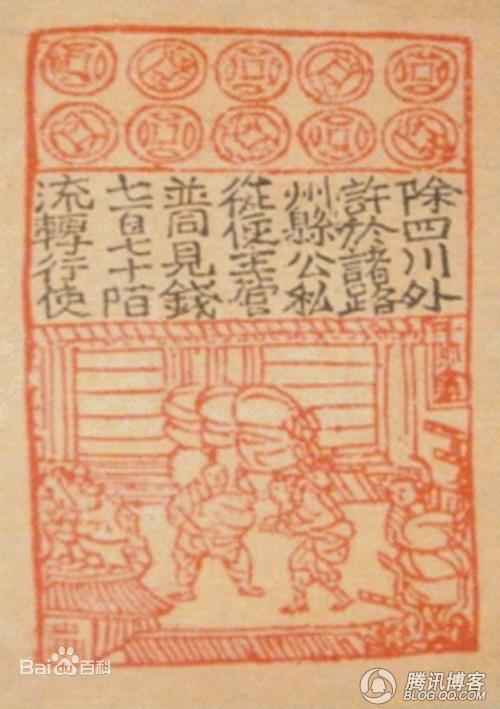 除四川外
許於諸路
州縣公私
從便主管
並同見錢
七百七十陌
流轉行使
Bai du 百科
腾讯博客
BLOG.QQ.COM